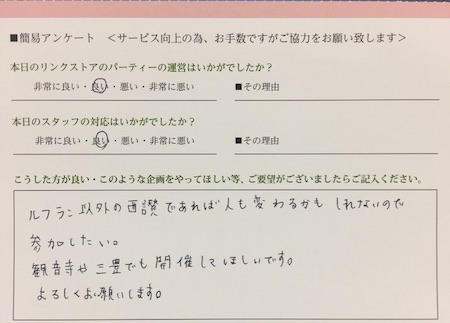 ■簡易アンケート ＜サービス向上の為、お手数ですがご協力をお願い致します＞
本日のリンクストアのパーティーの運営はいかがでしたか？
非常に良い・良い・悪い・非常に悪い ■その理由
本日のスタッフの対応はいかがでしたか？
非常に良い・良い・悪い・非常に悪い ■その理由
こうした方が良い・このような企画をやってほしい等、ご要望がございましたらご記入ください。
ルフラン以外の西讃であれば人も変わるかもしれないので
参加したい。
観音寺や三豊でも開催してほしいです。
よろしくお願いします。